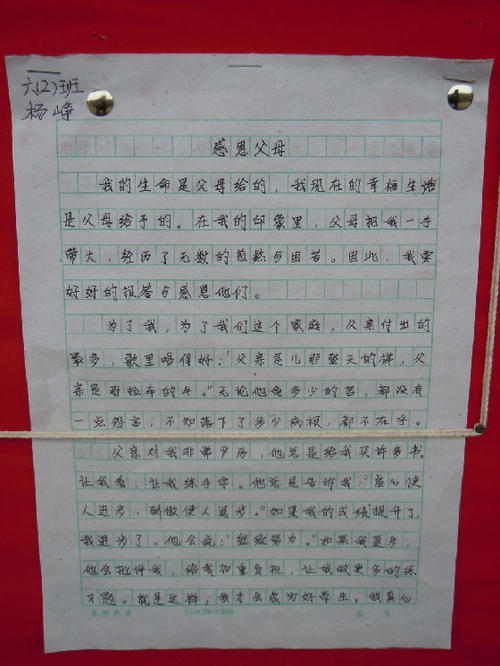 六(2)班
杨峥
感恩父母
我的生命是父母给的，我现在的幸福生活
是父母给予的。在我的印象里，父母把我一手
带大，经历了无数的煎熬与困苦。因此，我要
好好的报答与感恩他们。
为了我，为了我们这个家庭，父亲付出的
最多，歌里唱得好："父亲是儿那登天的梯，父
亲是那拉车的牛。"无论他食多少的苦，都没有
一点怨言，不知落下了多少病根，都不在乎。
父亲对我非常严厉，他总是给我买许多书
让我看，让我练手字。他总是告诉我："虚心使
人进步，骄傲使人退步。"如果我的成绩提升了，
我进步了，他会说："继续努力。"如果我退步，
他会批评我，给我加重负担，让我做更多的练
习题。就是这样，我才会成为好学生，我真心